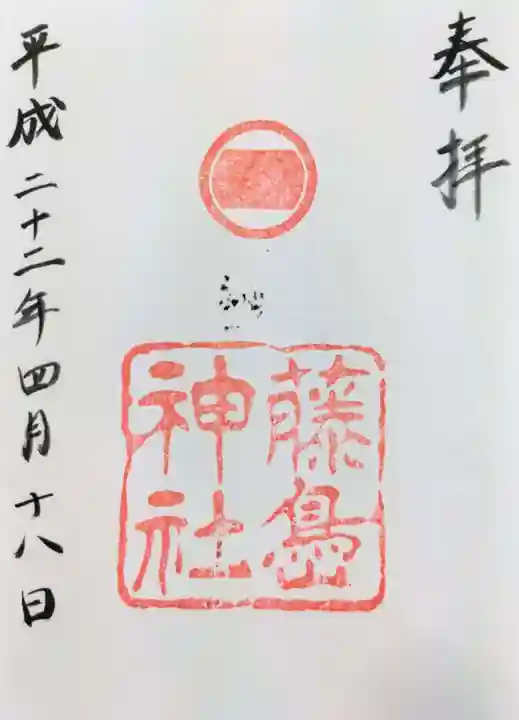 奉拝
藤島
神社
平成二十二年四月十八日